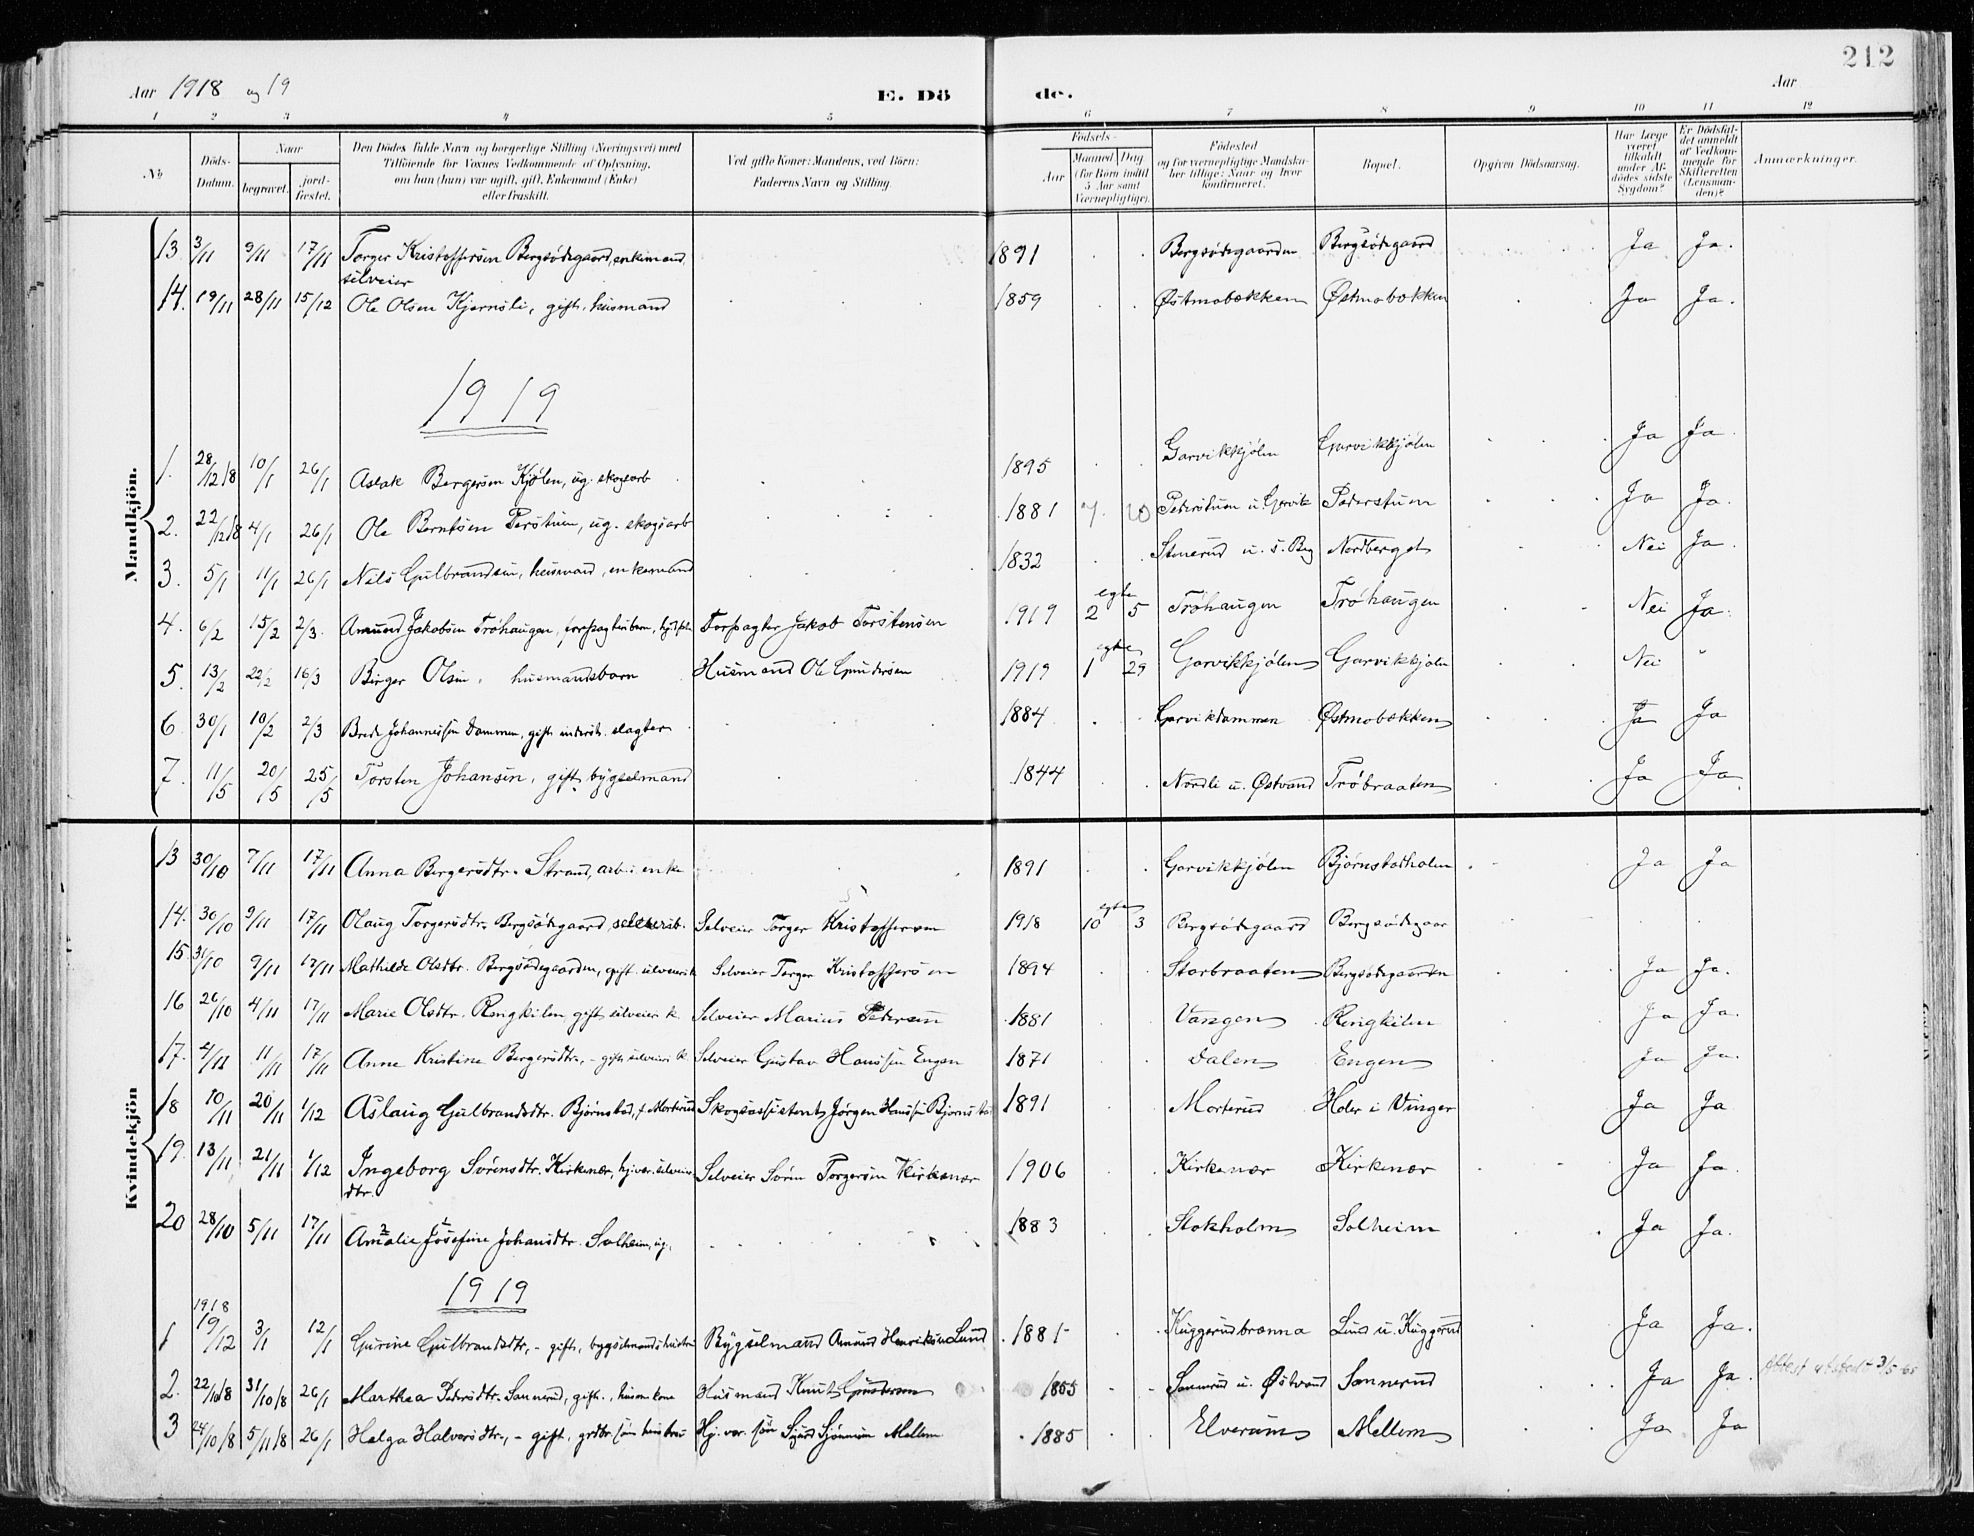 212
Aar 1918 og 19 E. Dö de. Aar
1 2 3 4 5 6 7 8 9 10 11 12
No Döds-Datum. Naar begravet. jord-fæstet. Den Dödes fulde Navn og borgerlige Stilling (Næringsvei) med Tilföiende for Voxnes Vedkommende af Oplysning, om han (hun) var ugift, gift, Enkemand (Enke) eller fraskilt. Ved gifte Koner: Mandens, ved Börn: Faderens Navn og Stilling. Födsels- Aar Maaned Dag (for Börn indtil 5 Aar samt Værnepligtige). Födested og for værnepligtige Mandskaber tillige: Naar og hvor konfirmeret. Bopæl. Opgiven Dödsaarsag. Har Læge været tilkaldt under Afdödes sidste Sygdom? Er Dödsfaldet anmeldt af Vedkommende for Skifteretten (Lensmanden)? Anmærkninger.
Mandkjön.
13 3/11 9/11 17/11 Torger Kristoffersen Bergsödegaard, enkemand, 1891 Bergsödegaarden Bergsödegaard Ja Ja.
selveier
14. 19/11 28/11 15/12 Ole Olsen Kjernsli, gift, husmand 1859 Østmobækken Østmobækken Ja Ja.
1919
1. 28/12 18 10/1 26/1 Aslak Bergersen Kjølen, ug. skogsarb 1895 Garvikkjølen Garvikkjølen Ja Ja
2. 22/12 18 4/1 26/1 Ole Berntsen Perstuen, ug. skogsarb 1881 7 20 Pederstuen u. Garvik Pederstuen Ja Ja.
3. 5/1 11/1 26/1 Nils Gulbrandsen, husmand, enkemand 1832 u. S. Berg Nordberget Nei Ja.
4. 6/2 15/2 2/3. Amund Jakobsen Tröhaugen, Forpagter Jakob Torstensen 1919 egte 2 5 Tröhaugen Tröhaugen Nei Ja.
5. 13/2 22/2 16/3 Birger Olsen, husmandsbarn Husmand Ole Gundersen 1919 egte 1 29 Garvikkjølen Garvikkjølen Nei "
6 30/1 10/2 2/3 Brede Johannessen Dammen, gift inderst. slagter 1884 Garvikdammen Østmobækken Ja Ja
7. 11/5 20/5 25/5 Torsten Johansen, gift, bygselmand 1844 Nordli u. Østvand Tröbraaten Ja Ja.
Kvindekjön
13 30/10 7/11 17/11 Anna Bergersdtr. Strand, arb. enke 1891 Garvikkjølen Björnstadholen Ja Ja
14. 30/10 9/11 17/11 Olaug Torgersdtr. Bergsödegaard, Selveier Torger Kristoffersen 1918 egte 10 3 Bergsödegaard Bergsödegaar
15 31/10 9/11 17/11 Mathilde Olsdtr. Bergsödegaarden, gift. Selveier Torger Kristoffersen 1894 Storbraaten Bergsödegaarden Ja Ja.
16 26/10 4/11 17/11 Marie Olsdtr. Ringkilen gift selveier k. Selveier Marius Pedersen 1881 Vangen Ringkilen Ja Ja.
17. 4/11 11/11 17/11 Anne Kristine Bergersdtr., - gift selveier k. Selveier Gustav Hanssen Engen 1871 Dalen Engen Ja Ja.
18 10/11 20/11 1/12 Aslaug Gulbrandsdtr. Björnstad, f. Morterud Skogsassistent Jörgen Hanssen Bjørnstad 1891 Morterud Holer i Vinger Ja Ja
19. 13/11 21/11 1/12 Ingeborg Sörensdtr. Kirkenær, hjver. selveier Selveier Sören Torgersen Kirkenær 1906 Kirkenær Kirkenær Ja Ja.
dtr.
20 28/10 5/11 17/11 Amalie Josefine Johansdtr. Solheim, ug. 1883 Stokholm Solheim Ja Ja.
1919
1918
1 19/12 3/1 12/1 Gurine Gulbrandsdtr, - gift, bygselmandshustru Bygselmand Amund Henriksen Lund 1881 Kuggerudbrænna Lund u. Kuggerud Ja Ja.
2. 22/10 18 31/10 18 26/1 Marthea Pedersdtr. Sannerud, gift, husm kone Husmand Knut Gundersen 1855 Sannerud u. Østvand Sannerud Ja Ja. Attest utsted 3/5-65
3 24/10 18 5/11 18 26/1 Helga Halvorsdtr, - gift, Hj. vær. søn Mellem 1885 Elverum Mellem Ja Ja